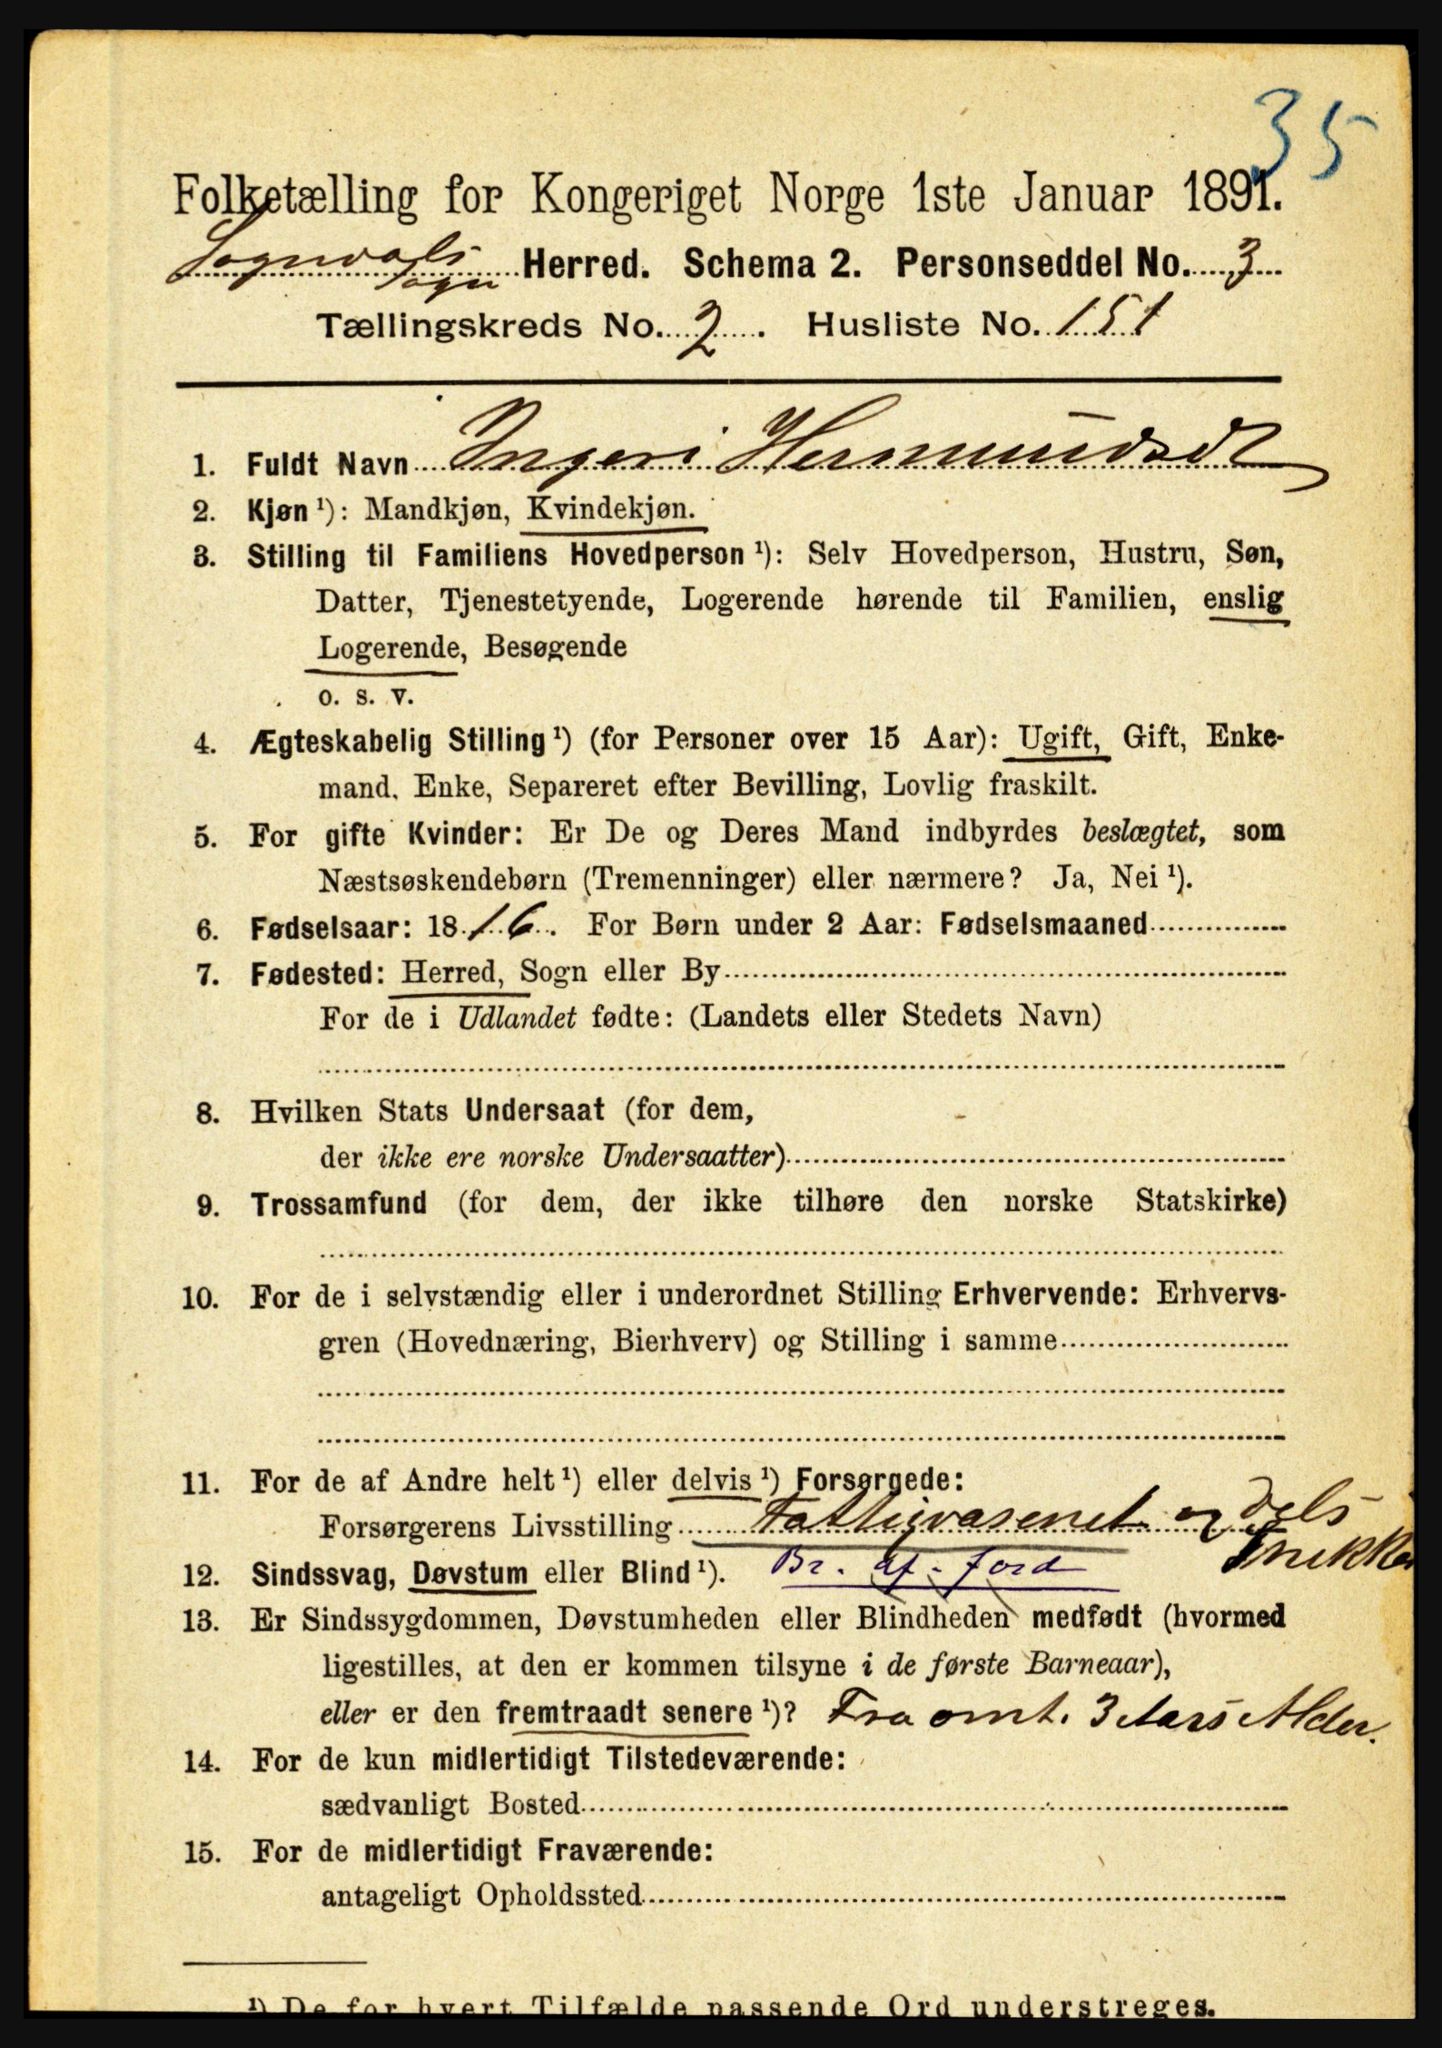 35
Folketælling for Kongeriget Norge 1ste Januar 1891.
Sogndals Sogn Herred. Schema 2. Personseddel No. 3
Tællingskreds No. 2. Husliste No. 151
1. Fuldt Navn Ingeri Hermundsdt
2. Kjøn ¹): Mandkjøn, Kvindekjøn.
3. Stilling til Familiens Hovedperson ¹): Selv Hovedperson, Hustru, Søn,
Datter, Tjenestetyende, Logerende hørende til Familien, enslig
Logerende, Besøgende
o. s. v.
4. Ægteskabelig Stilling ¹) (for Personer over 15 Aar): Ugift, Gift, Enke-
mand, Enke, Separeret efter Bevilling, Lovlig fraskilt.
5. For gifte Kvinder: Er De og Deres Mand indbyrdes beslægtet, som
Næstsøskendebørn (Tremenninger) eller nærmere? Ja, Nei ¹).
6. Fødselsaar: 1816. For Børn under 2 Aar: Fødselsmaaned
7. Fødested: Herred, Sogn eller By
For de i Udlandet fødte: (Landets eller Stedets Navn)
8. Hvilken Stats Undersaat (for dem,
der ikke ere norske Undersaatter)
9. Trossamfund (for dem, der ikke tilhøre den norske Statskirke)
10. For de i selvstændig eller i underordnet Stilling Erhvervende: Erhvervs-
gren (Hovednæring, Bierhverv) og Stilling i samme
11. For de af Andre helt ¹) eller delvis ¹) Forsørgede:
Forsørgerens Livsstilling Fattigvæsenet og dels
Snekker
12. Sindssvag, Døvstum eller Blind ¹). Br. af. Jord
13. Er Sindssygdommen, Døvstumheden eller Blindheden medfødt (hvormed
ligestilles, at den er kommen tilsyne i de første Barneaar),
eller er den fremtraadt senere ¹)? Fra omt. 3 Aars Alder.
14. For de kun midlertidigt Tilstedeværende:
sædvanligt Bosted
15. For de midlertidigt Fraværende:
antageligt Opholdssted
¹) De for hvert Tilfælde passende Ord understreges.